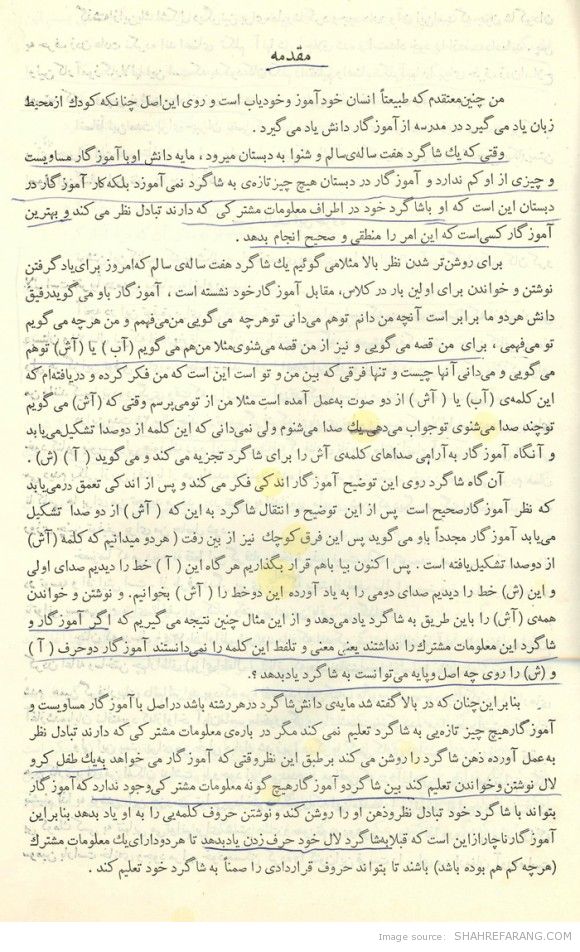 مقدمه
من چنین معتقدم که طبیعتاً انسان خودآموز وخودیاب است و روی این اصل چنانکه کودك از محیط
زبان یاد می گیرد در مدرسه از آموز گار دانش یاد می گیرد .
وقتی که یك شاگرد هفت ساله‌ی سالم و شنوا به دبستان میرود ، مایه دانش او با آموز گار مساویست
و چیزی از او کم ندارد و آموز گار در دبستان هیچ چیز تازه‌ی به شاگرد نمی آموزد بلکه کار آموز گار در
دبستان این است که او باشاگرد خود در اطراف معلومات مشتر کی که دارند تبادل نظر می کند و بهترین
آموز گار کسی است که این امر را منطقی و صحیح انجام بدهد .
برای روشن‌تر شدن نظر بالا مثلا می گوئیم یك شاگرد هفت ساله‌ی سالم که امروز برای یاد گرفتن
نوشتن و خواندن برای اولین بار در کلاس، مقابل آموز گار خود نشسته است ، آموز گار باو می گوید رفیق
دانش هردو ما برابر است آنچه من دانم توهم می‌دانی توهرچه می گویی من می‌فهمم و من هرچه می گویم
تو می‌فهمی ، برای من قصه می گویی و نیز از من قصه می‌شنوی مثلا من هم می گویم (آب) یا (آش) توهم
می گویی و می‌دانی آنها چیست و تنها فرقی که بین من و تو است این است که من فکر کرده و دریافته‌ام که
این کلمه‌ی (آب) یا ( آش ) از دو صوت به‌عمل آمده است مثلا من از تو می‌پرسم وقتی که (آش) می گویم
توچند صدا می‌شنوی توجواب می‌دهی یك صدا می‌شنوم ولی نمی‌دانی که این کلمه از دوصدا تشکیل می‌یابد
و آنگاه آموز گار به‌آرامی صداهای کلمه‌ی آش را برای شاگرد تجزیه می کند و می گوید ( آ ) (ش) .
آن گاه شاگرد روی این توضیح آموز گار اندکی فکر می کند و پس از اندکی تعمق درمی‌یابد
که نظر آموز گار صحیح است پس از این توضیح و انتقال شاگرد به این که ( آش ) از دو صدا تشکیل
می‌یابد آموز گار مجدداً باو می گوید پس این فرق کوچك نیز از بین رفت ( هردو میدانیم که کلمه (آش)
از دوصدا تشکیل‌یافته است . پس اکنون بیا باهم قرار بگذاریم هر گاه این ( آ ) خط را دیدیم صدای اولی
و این (ش) خط را دیدیم صدای دومی را به یاد آورده این دوخط را ( آش ) بخوانیم. و نوشتن و خواندن
همه‌ی (آش) را باین طریق به شاگرد یاد می‌دهد و از این مثال چنین نتیجه می گیریم که اگر آموز گار و
شاگرد این معلومات مشترك را نداشتند یعنی معنی و تلفظ این کلمه را نمی‌دانستند آموز گار دوحرف ( آ )
و (ش) را روی چه اصل وپایه می‌توانست به شاگرد یاد بدهد ؟.
بنابراین‌چنان که در بالا گفته شد مایه‌ی دانش شاگرد درهر رشته باشد در اصل با آموز گار مساویست و
آموز گار هیچ چیز تازه‌یی به شاگرد تعلیم نمی کند مگر در باره‌ی معلومات مشتر کی که دارند تبادل نظر
به‌عمل آورده ذهن شاگرد را روشن می کند برطبق این نظر وقتی که آموز گار می خواهد به‌یك طفل کر و
لال نوشتن وخواندن تعلیم کند بین شاگرد و آموز گار هیچ گونه معلومات مشتر کی وجود ندارد که آموز گار
بتواند با شاگرد خود تبادل نظر وذهن او را روشن کند و نوشتن حروف کلمه‌یی را به او یاد بدهد بنابراین
آموز گار ناچار از این است که قبلا به شاگرد لال خود حرف زدن یاد بدهد تا هر دو دارای یك معلومات مشترك
(هرچه کم هم بوده باشد) باشند تا بتواند حروف قراردادی را ضمناً به شاگرد خود تعلیم کند .
Image source: SHAHREFARANG.COM